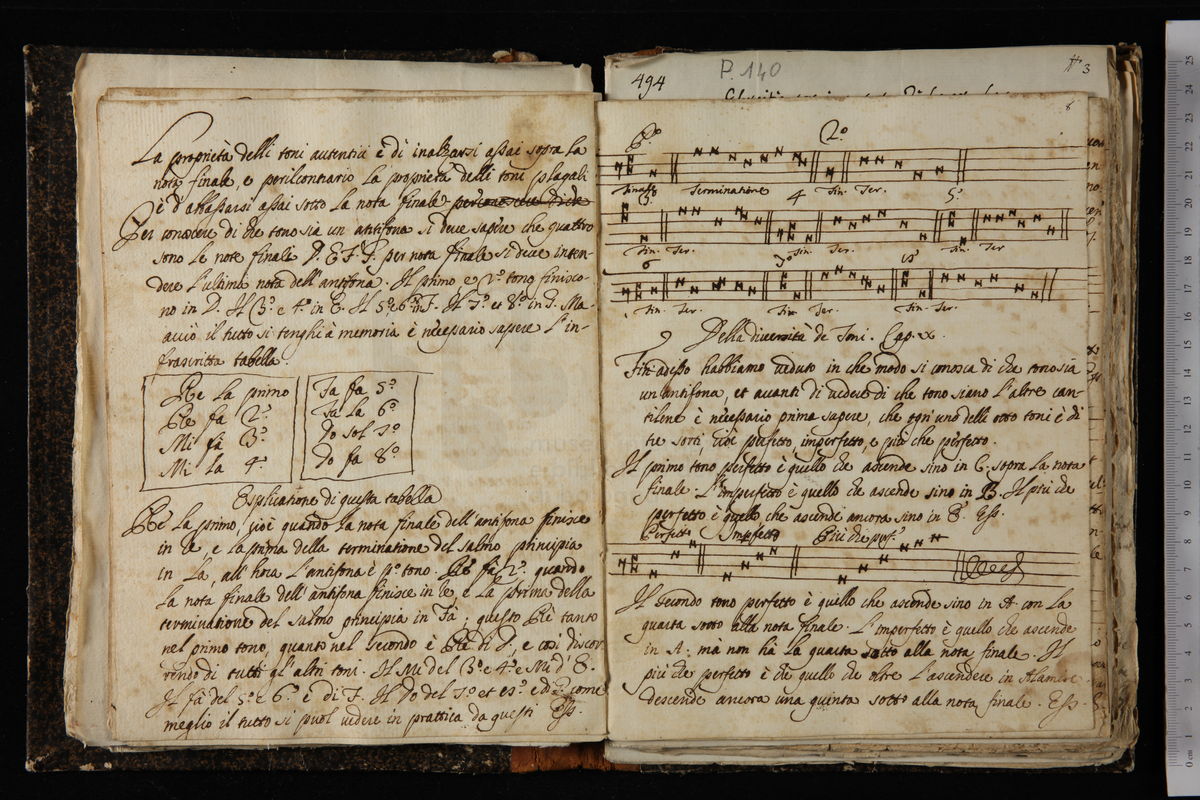 La proprietà delli toni autentici è di inalzarsi assai sopra la
nota finale, e perilcontrario la proprietà delli toni plagali
è d'abbassarsi assai sotto la nota finale
Per conoscere di che tono sia un antifona si deve sapere che quattro
sono le note finale D. E. F. G. per nota finale si deve inten-
dere l'ultima nota dell'antifona. Il primo e 2.º tono finisco-
no in D. Il 3.º e 4.º in E. Il 5.º e 6.º in F. Il 7.º et 8.º in G. Ma
acciò il tutto si tenghi à memoria è necessario sapere l'in-
frascritta tabella.
Re la primo
Re fa 2.º
Mi fa 3.º
Mi la 4.º
Fa fa 5.º
Fa la 6.º
Do sol 7.º
Do fa 8.º
Esplicatione di questa tabella
Re la primo, cioè quando la nota finale dell'antifona finisce
in re, e la prima della terminatione del salmo principia
in la, all'hora l'antifona è p.º tono. Re fà 2.º quando
la nota finale dell'antifona finisce in re, e la prima della
terminatione del salmo principia in fà; questo Rè tanto
nel primo tono, quanto nel secondo è Rè di D, e così discor-
rendo di tutti gl'altri toni. Il Mi del 3.º e 4.º è Mi d'E.
Il fà del 5.º e 6.º è di F. Il Do del 7.º et 8.º è di G. come
meglio il tutto si puol vedere in prattica da questi Ess.
494 P. 140 3
8
P.º 2.º
Finale Terminatione Fin. Ter.
3.º 4 5.º
Fin. Ter. Fin. Ter. Fin. Ter
6 7.º 8
Fin. Ter. Fin. Ter. Fin. Ter.
Della diversità de Toni. Cap. x.
Fin'adesso habbiamo veduto in che modo si conosca di che tono sia
un antifona, et avanti di vedere di che tono siano l'altre can-
tilene è necessario prima sapere, che ogn'uno delli otto toni è di
tre sorti, cioè perfetto, imperfetto, e più che perfetto.
Il primo tono perfetto è quello che ascende sino in C. sopra la nota
finale. L'imperfetto è quello che ascende sino in B. Il più che
perfetto è quello che ascende ancora sino in E. Ess.
Perfetto Imp.fetto Più che perf.º
Il secondo tono perfetto è quello che ascende sino in A con la
quarta sotto alla nota finale. L'imperfetto è quello che ascende
in A. mà non hà la quarta sotto alla nota finale. Il
più che perfetto è che quello che oltre l'ascendere in Alamire
descende ancora una quinta sotto alla nota finale. Ess.